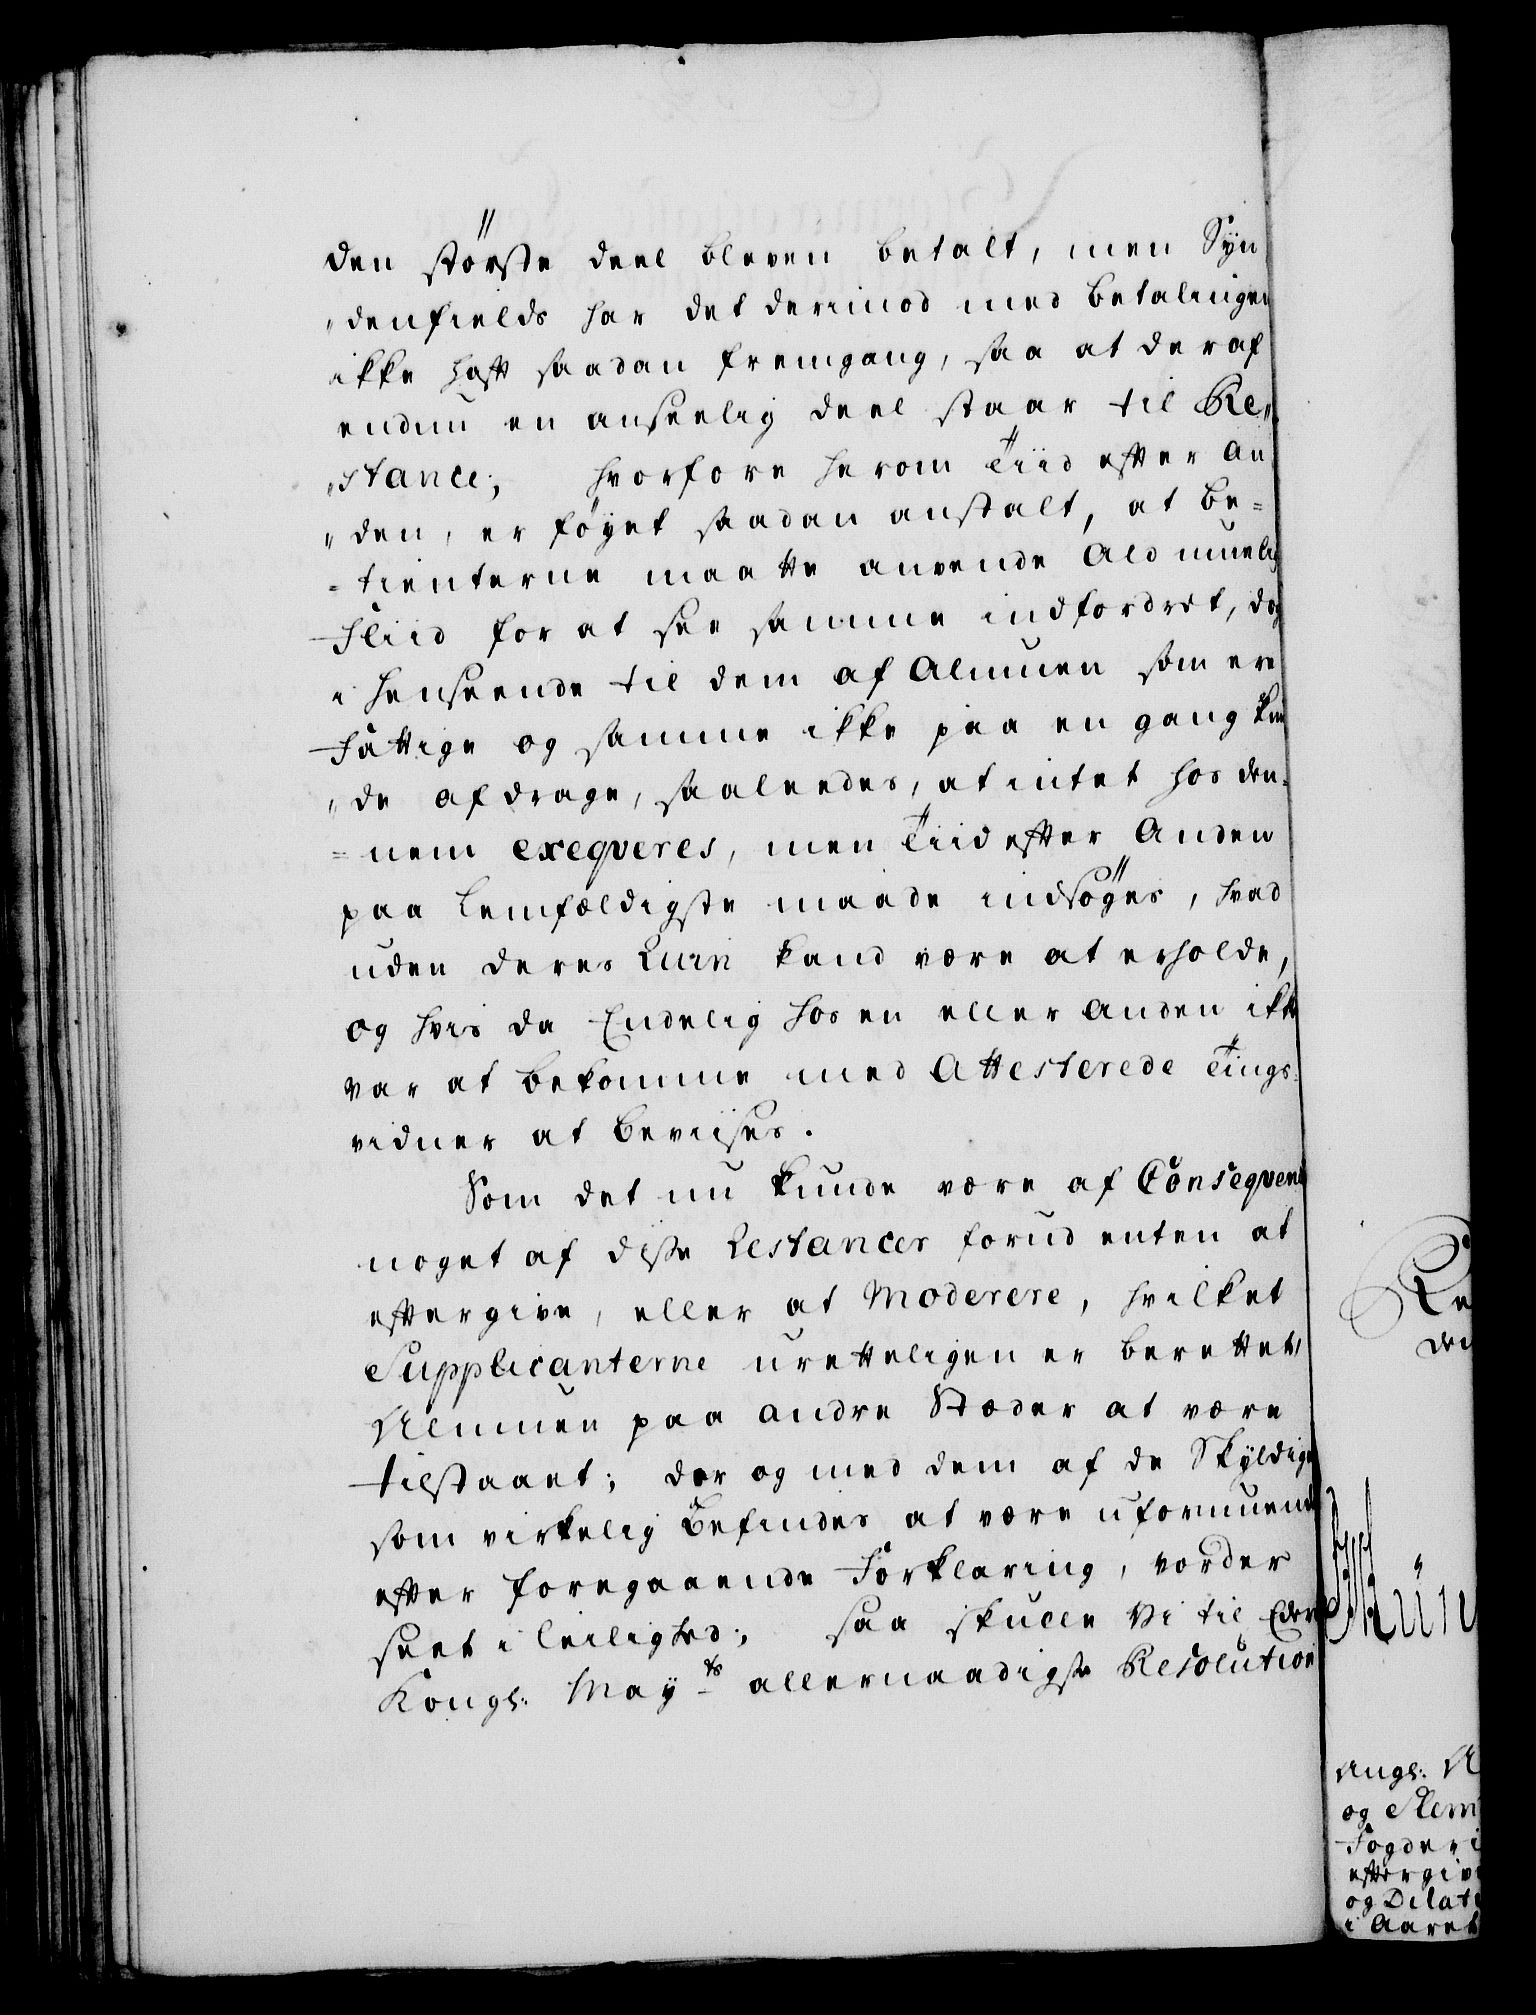 den største deel bleven betalt, men Syn
„denfields har det derimod med betalingen
ikke haft saadan fremgang, saa at deraf
endnu en anseelig deel staar til Re„
„stance; hvorfore herom Tiid efter an
„den, er föyet saadan anstalt, at be=
=tienterne maatte anvende Ald muelig
Fliid for at see samme indfordret, dog
i henseende til dem af Almuen som ere
Fattige og samme ikke paa en gang kun
„de afdrage, saaleedes, at intet hos den=
=nem exeqveres, men Tiid efter Anden
paa Lemfældigste maade indsöges, hvad
uden deres Ruin kand være at erholde,
og hvis da Endelig hos en eller anden ikke
var at bekomme med Attesterede Tings=
vidner at beviises.
Som det nu kunde være af Conseqvence
noget af disse Restancer forud enten at
eftergive, eller at Moderere, hvilket
Supplicanterne uretteligen er berettet,
Almuen paa andre Stæder at være
tilstaaet; der og med dem af de Skyldige
som virkelig Befindes at være uformuende
efter foregaaende Forklaring, vorder
seet i leilighed; saa skulle Vi til Eders
Kongl: May<sup>ts</sup> allernaadigste Resolution
Re
de
angl: A
og Nem
Fogderi
eftergiv
og Dilat
i Aaret